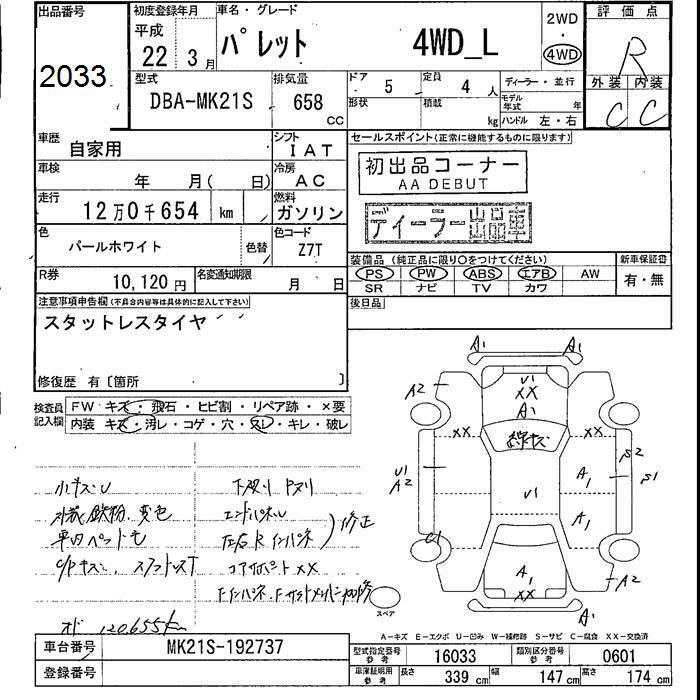 出品番号
2033
初度登録年月
平成
22年 3月
車名・グレード
パレット 4WD_L
2WD
・
4WD
評価点
R
外装 内装
C C
型式
DBA-MK21S
排気量
658 CC
ドア 5
定員 4人
形状
積載 kg
ディーラー・並行
モデル年式 年
ハンドル 左・右
車歴
自家用
シフト
IAT
車検
年 月( 日)
冷房
AC
走行
12万0千654 km
燃料
ガソリン
色
パールホワイト
色替
色コード
Z7T
R券
10,120円
名変通知期限
月 日
セールスポイント(正常に機能するものに限ります)
初出品コーナー
AA DEBUT
ディーラー出品車
装備品(純正品に限り○をつけてください)
PS PW ABS エアB AW
SR ナビ TV カワ
新車保証書
有・無
後日品
注意事項申告欄(不具合内容等は具体的に記入して下さい)
スタットレスタイヤ
修復歴 有〔箇所 〕
検査員記入欄
FW キズ・飛石・ヒビ割・リペア跡・×要
内装 キズ・汚レ・コゲ・穴・スレ・キレ・破レ
小キズU
外装鉄粉、変色
エンドパネルU
修正
コアサポートXX
120,655km
A1 A1
A2
U1
XX
A1
XX XX
U1
A2
U1
A1
A1
S2 S1
C1
A1
XX
A2
A1
スペア
A-キズ E-エクボ U-凹み W-補修跡 S-サビ C-腐食 XX-交換済
車台番号
MK21S-192737
登録番号
型式指定番号 参考
16033
類別区分番号 参考
0601
車庫証明用 参考
長さ 339 cm
幅 147 cm
高さ 174 cm